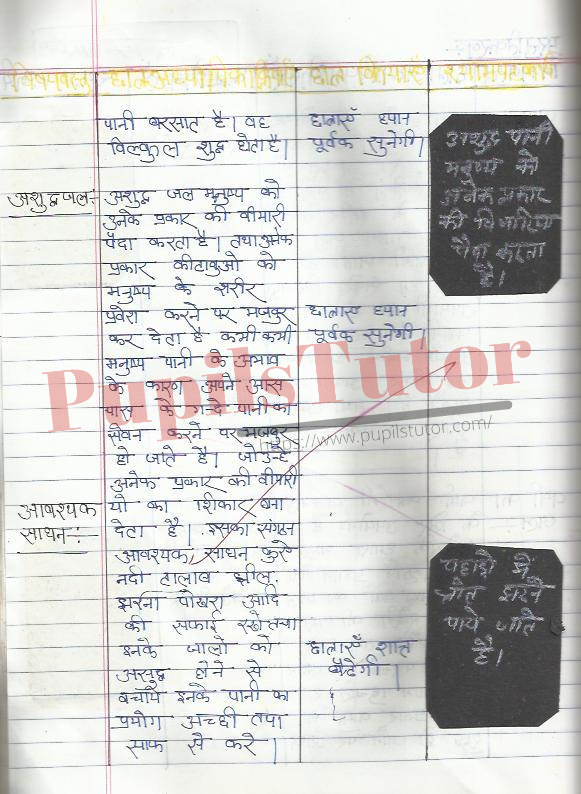 विषयवस्तु छात्र अध्यापिका क्रियाएँ छात्र क्रियाएँ श्यामपट्ट कार्य
पानी बरसात है। वह
विल्कुल शुद्ध होता है।
छात्राएँ ध्यान
पूर्वक सुनेगी।
अशुद्ध पानी
मनुष्य को
अनेक प्रकार
की
पैदा करता
है।
अशुद्ध जल:-
अशुद्ध जल मनुष्य को
उनके प्रकार की वीमारी
पैदा करता है। तथा अनेक
प्रकार कीटाणुओ को
मनुष्य के शरीर
प्रवेश करने पर मजबुर
कर देता है कभी कभी
मनुष्य पानी के अभाव
के कारण अपने आस
पास के गन्दे पानी का
सेवन करने पर मजबुर
हो जाते है। जो उन्हे
अनेक प्रकार की वीमारी
यो का शिकार बना
देता है। इसका संगठन
छात्राएँ ध्यान
पूर्वक सुनेगी।
PupilsTutor
https://www.pupilstutor.com/
आवश्यक
साधन:-
आवश्यक साधन कुएे
नदी तालाब झील
झरना पोखरा आदि
की सफाई रखे तथा
इनके जालो को
असुद्ध होने से
बचाये इनके पानी का
प्रयोग अच्छी तथा
साफ से करे।
छात्राएँ शान्त
बैठेगी।
पहाडो में
स्रोत झरने
पाये जाते
है।